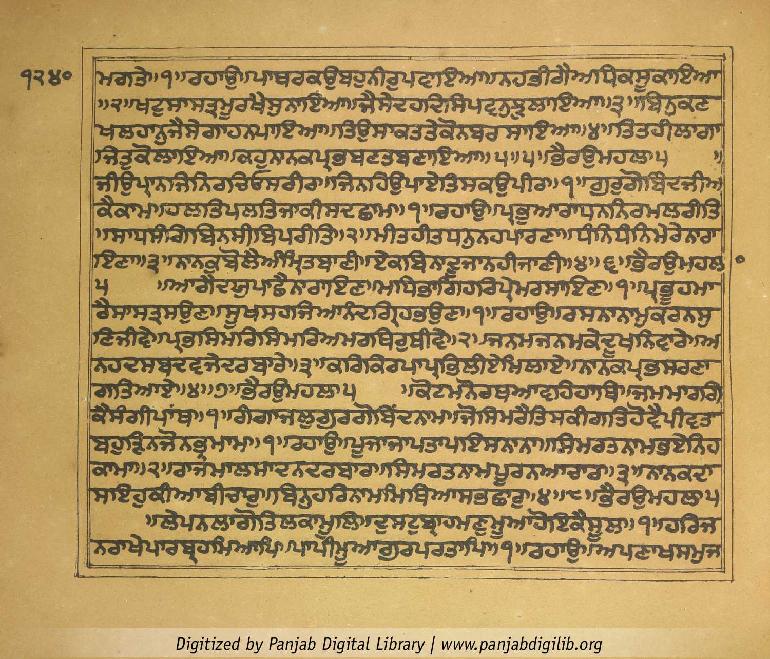 ੧੨੪੦
ਮਗਤੇ॥੧॥ਰਹਾਉ॥ਪਾਥਰਕਉਬਹੁਨੀਰੁਪਵਾਇਆ॥ਨਹਭੀਗੈਅਧਿਕਸੂਕਾਇਆ
॥੨॥ਖਟੁਸਾਸਤ੍ਰਮੂਰਖੈਸੁਨਾਇਆ॥ਜੈਸੇਦਹਦਿਸਪਵਨੁਝੁਲਾਇਆ॥੩॥ਬਿਨੁਕਣ
ਖਲਹਾਨੁਜੈਸੇਗਾਹਨਪਾਇਆ॥ਤਿਉਸਾਕਤਤੇਕੋਨਬਰਸਾਇਆ॥੪॥ਤਿਤਹੀਲਾਗਾ
ਜਿਤੁਕੋਲਾਇਆ॥ਕਹੁਨਾਨਕਪ੍ਰਭਬਣਤਬਣਾਇਆ॥੫॥੫॥ਭੈਰਉਮਹਲਾ੫॥
ਜੀਉਪ੍ਰਾਨਜਿਨਿਰਚਿਓਸਰੀਰ॥ਜਿਨਹਿਉਪਾਏਤਿਸਕਉਪੀਰ॥੧॥ਗੁਰੁਗੋਬਿੰਦਜੀਅ
ਕੈਕਾਮ॥ਹਲਤਿਪਲਤਿਜਾਕੀਸਦਛਾਮ॥੧॥ਰਹਾਉ॥ਪ੍ਰਭੁਆਰਾਧਨਨਿਰਮਲਰੀਤਿ
॥ਸਾਧਸੰਗਿਬਿਨਸੀਬਿਪਰੀਤਿ॥੨॥ਮੀਤਹੀਤਧਨੁਨਹਪਾਰਣਾ॥ਧੰਨਿਧੰਨਿਮੇਰੇਨਾਰਾ
ਇਣਾ॥੩॥ਨਾਨਕੁਬੋਲੈਅੰਮ੍ਰਿਤਬਾਣੀ॥ਏਕਬਿਨਾਦੂਜਾਨਹੀਜਾਣੀ॥੪॥੬॥ਭੈਰਉਮਹਲ
੫॥ਆਗੈਦਯੁਪਾਛੈਨਾਰਾਇਣ॥ਮਧਿਭਾਗਿਹਰਿਪ੍ਰੇਮਰਸਾਇਣ॥੧॥ਪ੍ਰਭੂਹਮਾ
ਰੈਸਾਸਤ੍ਰਸਉਣ॥ਸੂਖਸਹਜਆਨੰਦਗ੍ਰਿਹਭਉਣ॥੧॥ਰਹਾਉ॥ਰਸਨਾਨਾਮੁਕਰਨਸੁ
ਣਿਜੀਵੇ॥ਪ੍ਰਭਸਿਮਰਿਸਿਮਰਿਅਮਰਥਿਰੁਥੀਵੇ॥੨॥ਜਨਮਜਨਮਕੇਦੂਖਨਿਵਾਰੇ॥ਅ
ਨਹਦਸਬਦਵਜੇਦਰਬਾਰੇ॥੩॥ਕਰਿਕਿਰਪਾਪ੍ਰਭਿਲੀਏਮਿਲਾਏ॥ਨਾਨਕਪ੍ਰਭਸਰਣਾ
ਗਤਿਆਏ॥੪॥੭॥ਭੈਰਉਮਹਲਾ੫॥ਕੋਟਿਮਨੋਰਥਆਵਹਿਹਾਥਿ॥ਜਮਮਾਰਗਿ
ਕੈਸੰਗੀਪਾਂਥ॥੧॥ਗੰਗਾਜਲੁਗੁਰਗੋਬਿੰਦਨਾਮ॥ਜੋਸਿਮਰੈਤਿਸਕੀਗਤਿਹੋਵੈਪੀਵਤ
ਬਹੁੜਿਨਜੋਨਿਭ੍ਰਮਾਮ॥੧॥ਰਹਾਉ॥ਪੂਜਾਜਾਪਤਾਪਇਸਨਾਨ॥ਸਿਮਰਤਨਾਮਭਏਨਿਹ
ਕਾਮ॥੨॥ਰਾਜਮਾਲਸਾਦਨਦਰਬਾਰ॥ਸਿਮਰਤਨਾਮਪੂਰਨਆਚਾਰ॥੩॥ਨਾਨਕਦਾ
ਸਇਹੁਕੀਆਬੀਚਾਰੁ॥ਬਿਨੁਹਰਿਨਾਮਮਿਥਿਆਸਭਛਾਰੁ॥੪॥੮॥ਭੈਰਉਮਹਲਾ੫
॥ਲੇਪੁਨਲਾਗੋਤਿਲਕਾਮੂਲਿ॥ਦੁਸਟੁਬ੍ਰਾਹਮਣੁਮੂਆਹੋਇਕੈਸੂਲ॥੧॥ਹਰਿਜ
ਨਰਾਖੇਪਾਰਬ੍ਰਹਮਿਆਪਿ॥ਪਾਪੀਮੂਆਗੁਰਪਰਤਾਪਿ॥੧॥ਰਹਾਉ॥ਅਪਣਾਖਸਮੁਜ
Digitized by Panjab Digital Library | www.panjabdigilib.org